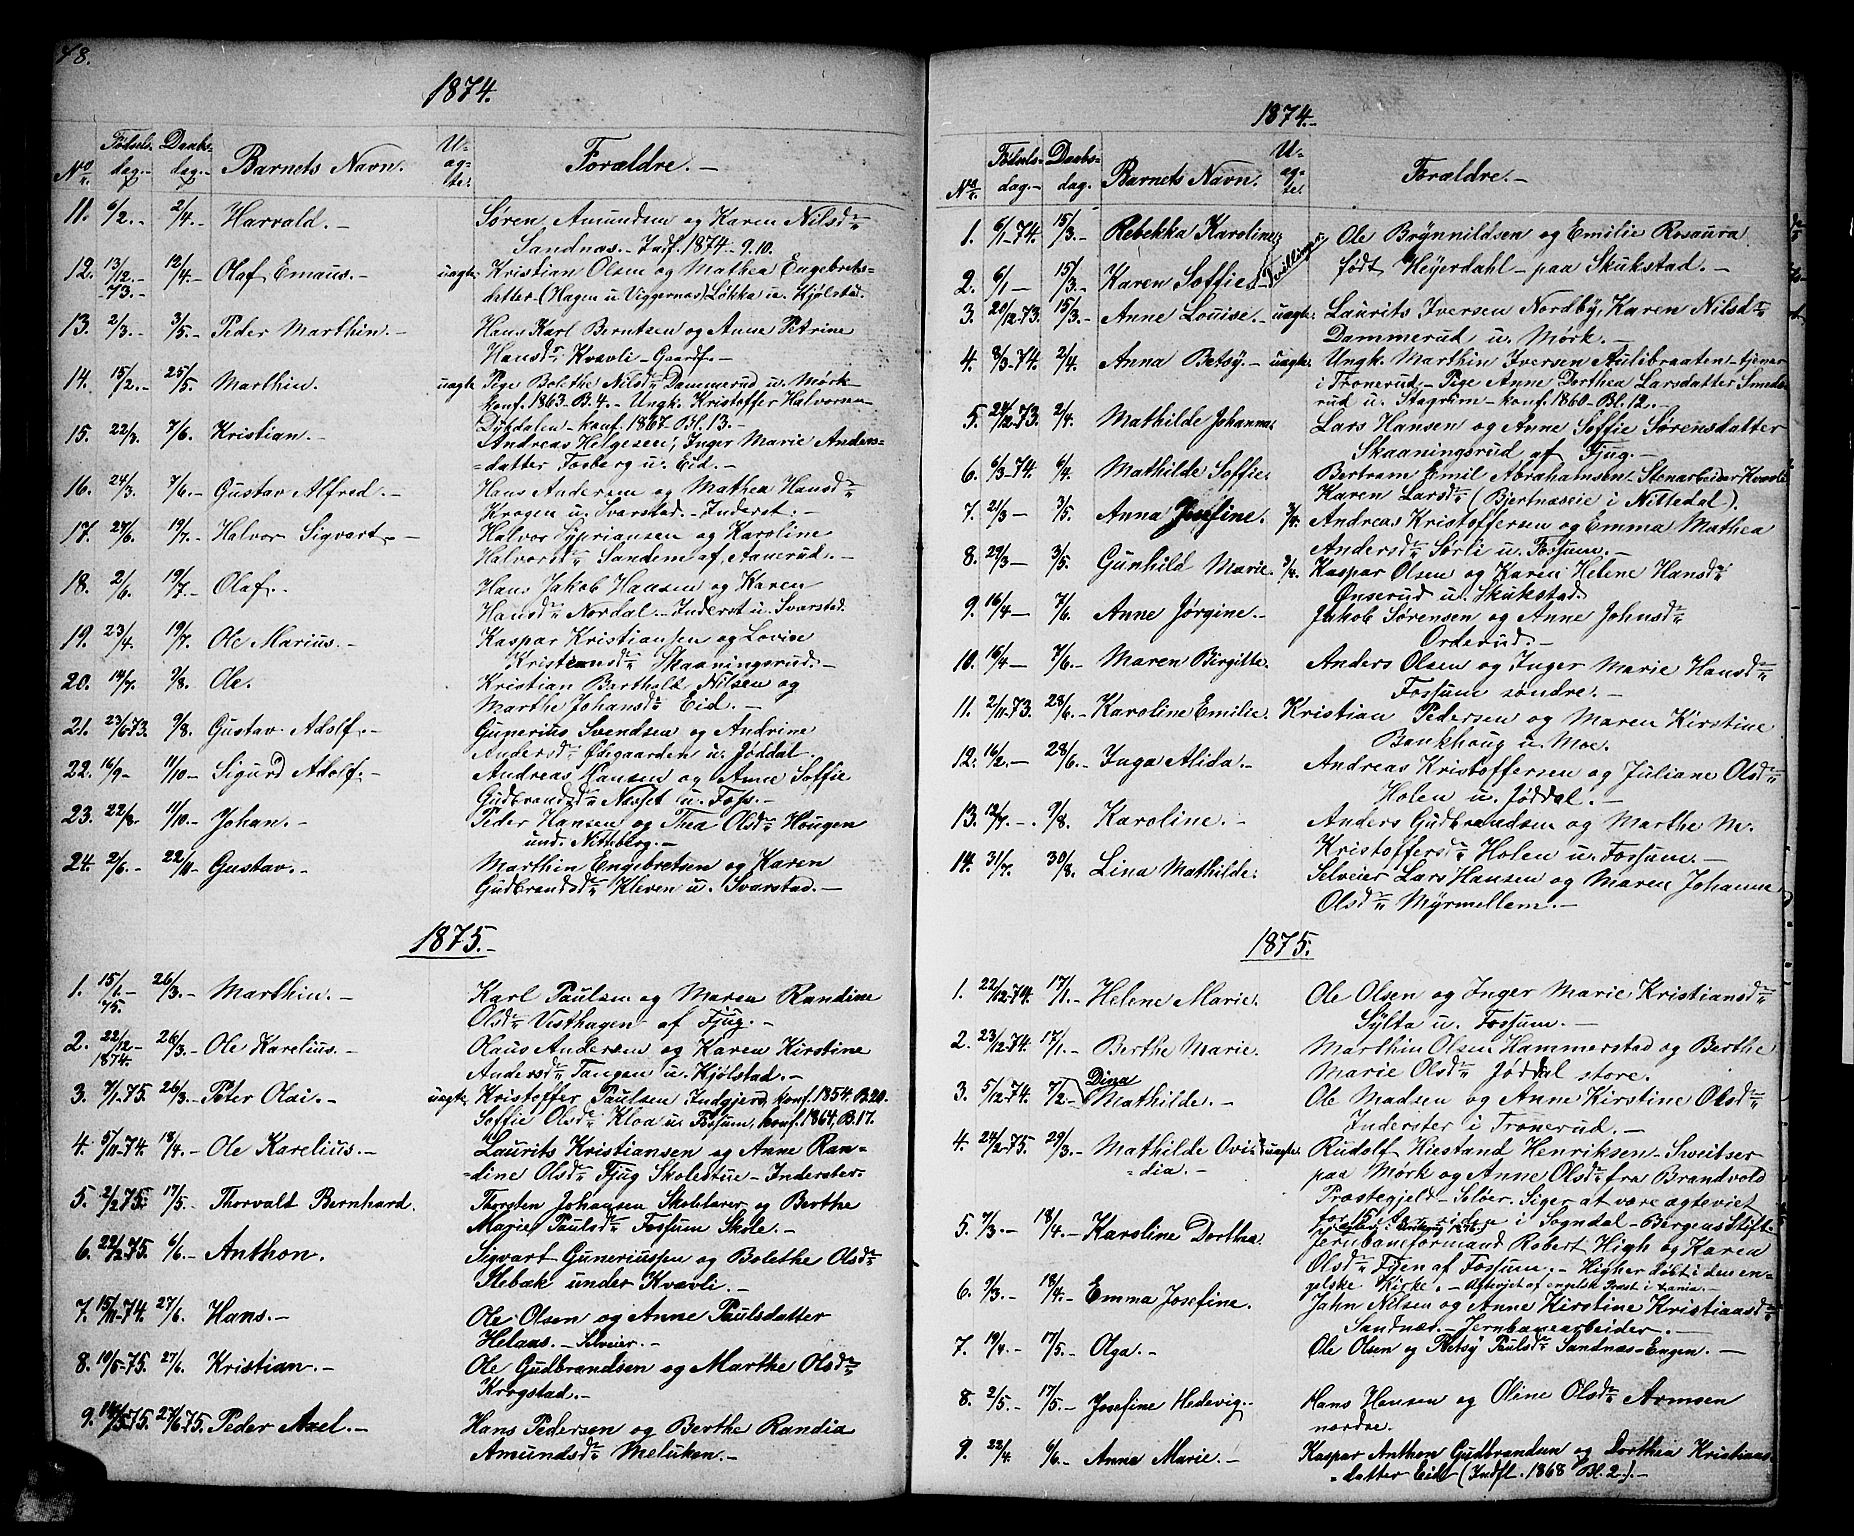 48.
1874.
No. Fødsels- dag.- Daabs- dag.- Barnets Navn. U- ag- te. Forældre.-
11. 6/2.- 2/4.- Harvald.- Søren Amundsen og Karen Nilsdr
Sandnæs.- Indf. 1874-9.10.
12. 13/12.-73.- 12/4.- Olaf Emaus.- uagte. Kristian Olsen og Mathea Engebrets-
datter-(Hagen u. Viggernæs) Løkka u. Kjølstad.
13. 2/3.- 3/5.- Peder Marthin.- Hans Karl Berntsen og Anne Petrine
Hansdr Kvævli-Gaardf.-
14. 15/2.- 25/5. Marthin. uagte. Pige Bolethe Nilsdr Dammerud u. Mørk-
konf. 1863-B.4.- Ungk. Kristoffer Halvorsen
Dybdalen-konf. 1867-Bl. 13.-
15. 22/3. 7/6.- Kristian.- Andreas Helgesen, Inger Marie Anders-
=datter Fosberg u. Eid.-
16. 24/3. 7/6.- Gustav Alfred.- Hans Andersen og Mathea Hansdr
Krogen u. Svarstad.-Inderst.-
17. 27/6. 19/7.- Halvor Sigvart.- Halvor Syprianсen og Karoline
Halvorsdr Sandem af Aamerud.-
18. 2/6. 19/7.- Olaf.- Hans Jakob Hansen og Karen
Hansdr Nordal.-Inderst u. Svarstad.
19. 23/4. 19/7. Ole Marius.- Kaspar Kristiansen og Lovise
Kristiansdr Skaaningsrud.-
20. 14/7. 9/8. Ole. Kristian Barthold Nilsen og
Marthe Johansdr Eid.-
21. 23/6 73. 9/8. Gustav Adolf.- Gunerius Svendsen og Andrine
Andersdr Ødegaarden u. Jøddal.
22. 16/9- 11/10- Sigurd Adolf.- Andreas Hansen og Anne Soffie
Gudbrandsdr Næsset u. Foss.-
23. 22/8. 11/10- Johan.- Peder Hansen og Thea Olsdr Hougen
und. Nitteberg.-
24. 2/6.- 22/11- Gustav.- Marthin Engebretsen og Karen
Gudbrandsdr Kleven u. Svarstad.-
1875.-
1. 15/1.- 75. 26/3.- Marthin.- Karl Paulsen og Maren Randine
Olsdr Visthagen af Fjug.-
2. 22/12- 1874. 26/3.- Ole Karelius.- Olaus Andersen og Karen Kirstine
Andersdr Tangen u. Kjølstad.-
3. 7/1.75. 26/3.- Peter Olai.- uagte. Kristoffer Paulsen Indgjerd, konf. 1854. B.20.
Soffie Olsdr Kloa u. Fossum, konf. 1864, B.17.
4. 5/11-74. 18/4.- Ole Karelius.- Laurits Kristiansen og Anne Ran-
=dine Olsdr Fjug Skolestue-Inderster-
5. 2/2 75. 17/5. Thorvalt Bernhard. Thorsten Johansen Skolelærer og Berthe
Marie Paulsdr Fossum Skole.-
6. 22/2 75. 6/6.- Anthon. Sigvart Gunerius sen og Bolethe Olsdr
Stebæk under Kvævli.-
7. 15/11-74. 27/6. Hans.- Ole Olsen og Anne Paulsdatter
Helaas.-Selveier.-
8. 10/5-75. 27/6. Kristian.- Ole Gudbrandsen og Marthe Olsdr
Krogstad.-
9. 14/5 75. 27/6 75. Peder Axel.- Hans Pedersen og Berthe Randia
Amundsdr Meluken.-
1874.-
No. Fødsels- dag.- Daabs- dag. Barnets Navn. U- ag- te. Forældre.-
1. 6/1-74. 15/3.- Rebekka Karoline. Tvillinger Ole Brynnildsen og Emilie Rosaura
2. 6/1- 15/3.- Karen Soffie.- født Heyerdahl-paa Skukstad.-
3. 20/12-73. 15/3.- Anne Louise.- uagte. Laurits Iversen Nordby, Karen Nilsdr
Dammerud u. Mørk.-
4. 8/3-74. 2/4.- Anna Betsy.- uagte. Ungk. Marthin Iversen Aulibraaten-tjener
i Tronerud.-Pige Anne Dorthea Larsdatter
rud u. konf. 1860-Bl. 12.-
5. 24/12-73. 2/4.- Mathilde Johanna. Lars Hansen og Anne Soffie Sørensdatter
Skaaningsrud af Fjug.-
6. 6/3-74. 6/4. Mathilde Soffie. Bertram Emil Abrahamsen-Stenarbeider Kvævli
Karen Larsdr (Bjertnæseie i Nittedal).
7. 21/3- 3/5. Anna Josefine. 3/4. Andreas Kristoffersen og Emma Mathea
Andersdr Sørli u. Fossum.-
8. 29/3- 3/5. Gunhild Marie. 3/4. Kaspar Olsen og Karen Helene Hansdr
Ønserud u. Skukstad.
9. 16/4- 7/6- Anne Jørgine.- Jakob Sørensen og Anne Johnsdr
Orderud.-
10. 16/4- 7/6- Maren Birgitte. Anders Olsen og Inger Marie Hansdr
Fossum søndre.-
11. 2/11-73. 28/6.- Karoline Emilie. Kristian Pedersen og Maren Kirstine
Bankhoug u. Moe.
12. 16/2.- 28/6- Inga Alida.- Andreas Kristoffersen og Juliane Olsdr
Holen u. Jøddal.-
13. 12/7.- 9/8. Karoline.- Anders Gudbrandsen og Marthe M.
Kristoffersdr Holen u. Fossum.-
14. 31/7. 30/8. Lina Mathilde. Selveier Lars Hansen og Maren Johanne
Olsdr Myrmellem.-
1875.
1. 22/12-74. 17/1.- Helene Marie. Ole Olsen og Inger Marie Kristiansdr
Sylta u. Fossum.-
2. 23/12-74. 17/1.- Berthe Marie. Marthin Olsen Hammerstad og Berthe
Marie Olsdr Jøddal store.
3. 5/12-74. 7/2- Dina
Mathilde.- Ole Madsen og Anne Kirstine Olsdr
Inderster i Tronerud.-
4. 24/2-75. 29/3.- Mathilde Ovi- uagte. Rudolf Hiestand Henriksen-Sweitser
=dia.- paa Mørk og Anne Olsdr fra Brandvold
Præstegjeld-Soløer. Siger at være ægteviet
i Sogndal-Bergens Stift-
5. 7/3.- 18/4.- Karoline Dorthea. Jernbaneformand Robert High og Karen
Olsdr Eien af Fossum.-High er døbt i den en-
gelske Kirke.-
6. 9/3.- 18/4.- Emma Josefine. Jahn Nilsen og Anne Kirstine Kristiansdr
Sandnæs.-Jernbanearbeider.-
7. 19/4.- 17/5.- Olga.- Ole Olsen og Betsy Paulsdr Sandnæs-Engen.-
8. 2/5.- 17/5.- Josefine Hedevig.- Hans Hansen og Oline Olsdr Aamsen
nordre.
9. 22/4. 6/6- Anna Marie.- Kaspar Anthon Gudbrandsen og Dorthea Kristians
=datter Eid (Indfl. 1868 Bl. 2).-